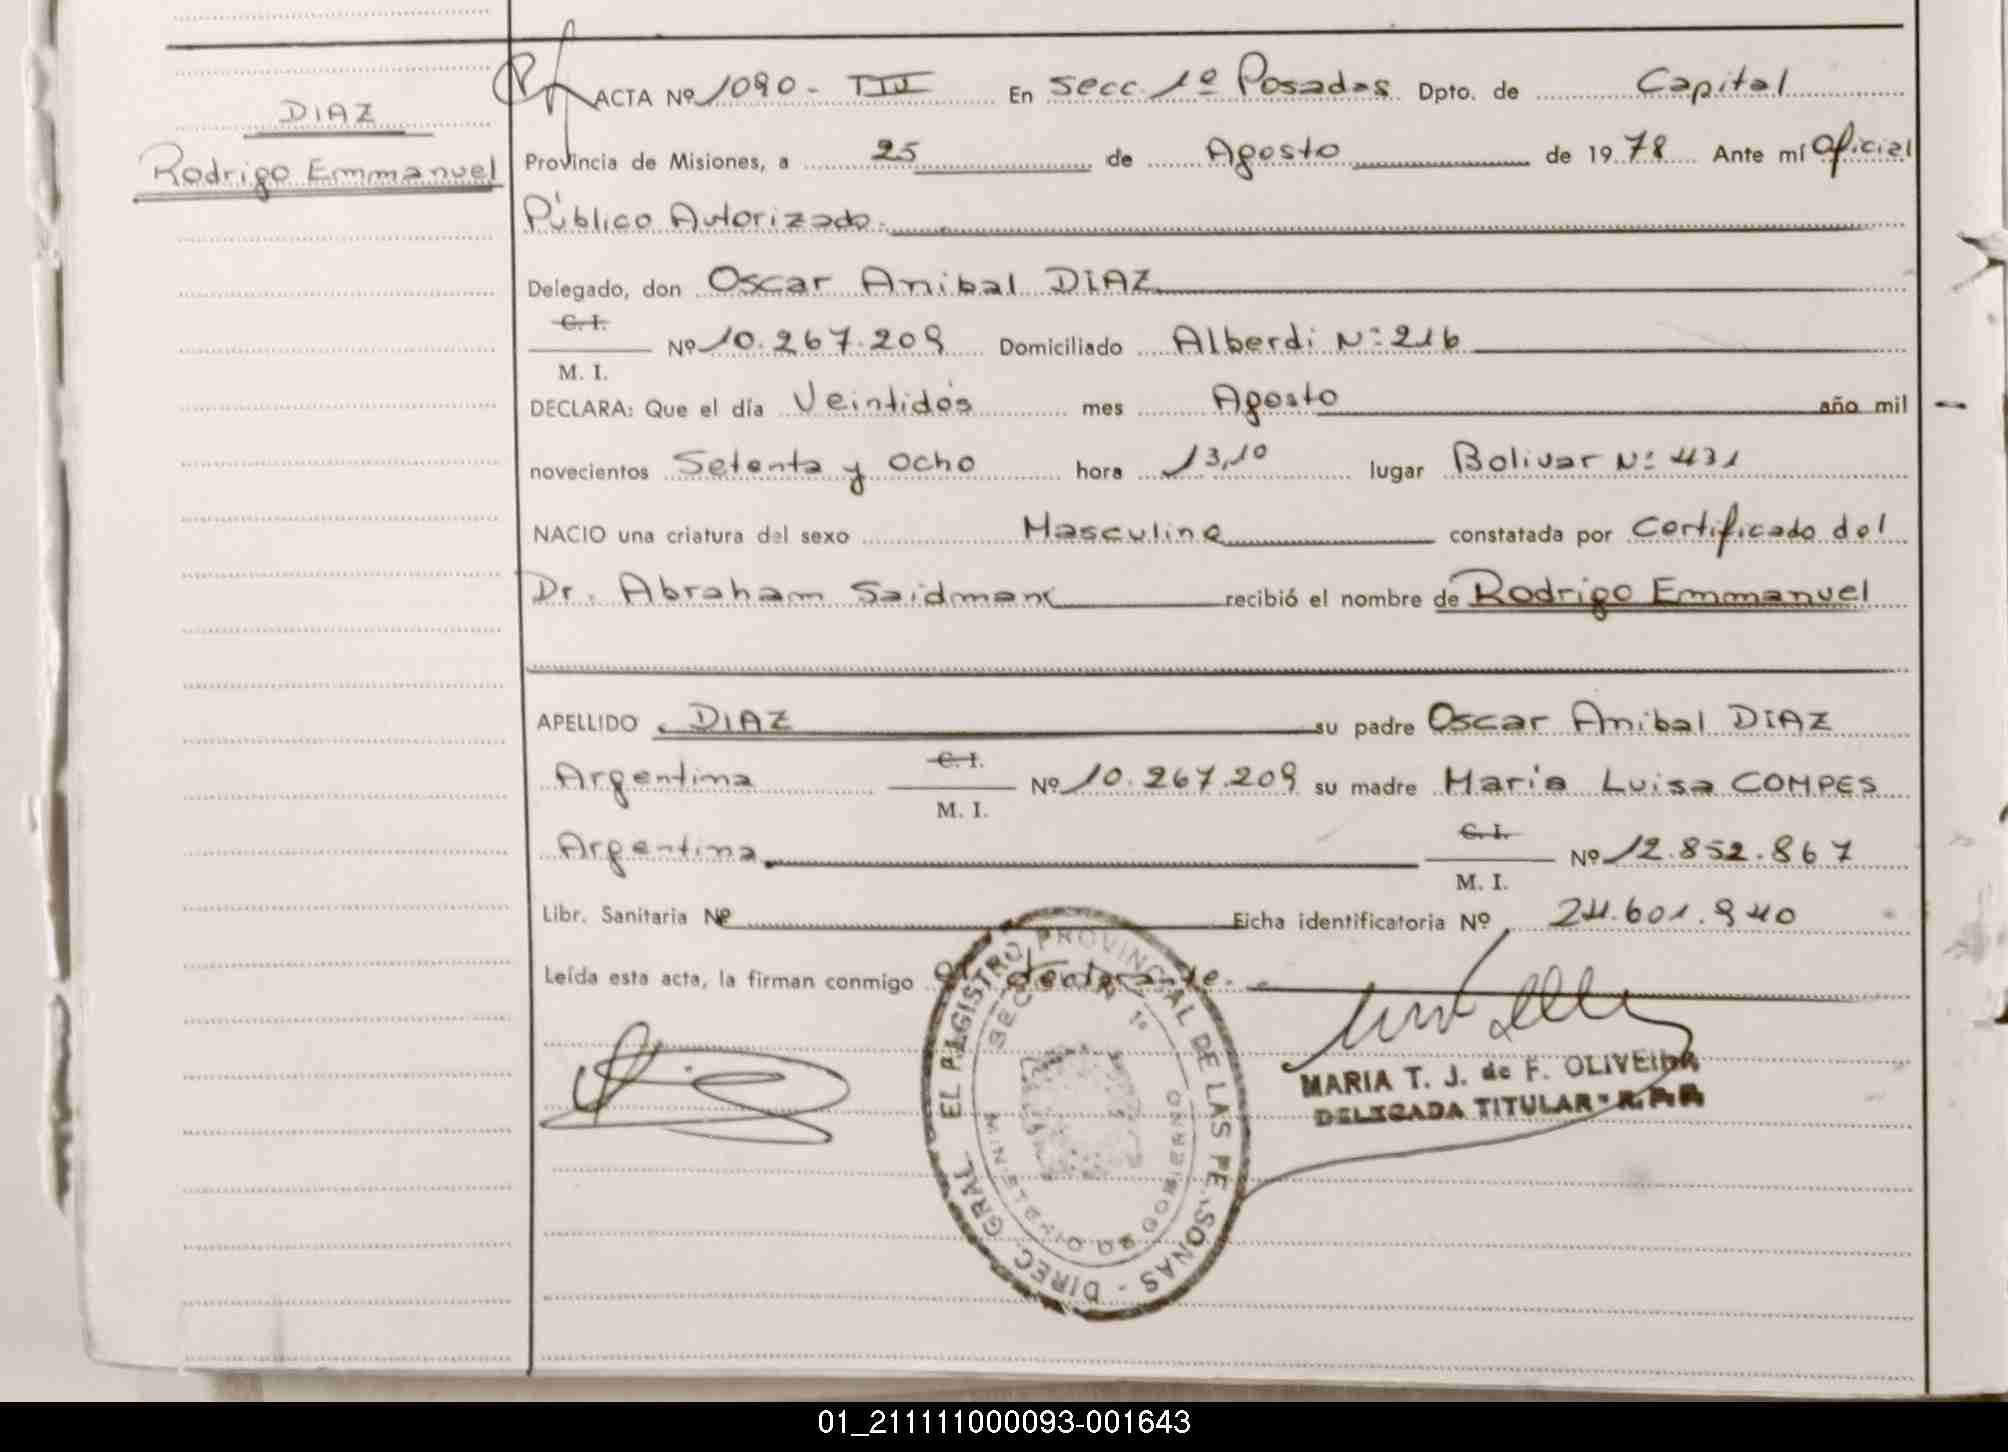 DIAZ
Rodrigo Emmanuel
ACTA Nº 1090 - TIII En Secc. 1º Posadas Dpto. de Capital
Provincia de Misiones, a 25 de Agosto de 1978 Ante mí Oficial
Público Autorizado.
Delegado, don Oscar Anibal DIAZ
C. I.
Nº 10.267.209 Domiciliado Alberdi Nº 216
M. I.
DECLARA: Que el día Veintidós mes Agosto año mil
novecientos Setenta y Ocho hora 13,10 lugar Bolivar Nº 431
NACIO una criatura del sexo Masculino constatada por Certificado del
Dr. Abraham Saidman recibió el nombre de Rodrigo Emmanuel
APELLIDO DIAZ su padre Oscar Anibal DIAZ
C. I.
Argentina Nº 10.267.209 su madre Maria Luisa COMPES
M. I.
C. I.
Argentina Nº 12.852.867
M. I.
Libr. Sanitaria Nº Ficha identificatoria Nº 24.601.940
Leída esta acta, la firman conmigo el declarante.
MARIA T. J. de F. OLIVEIRA
DELEGADA TITULAR - R.P.P.
DIREC. GRAL. EL REGISTRO PROVINCIAL DE LAS PERSONAS
SECCION 1º
MINISTERIO DE GOBIERNO
01_211111000093-001643